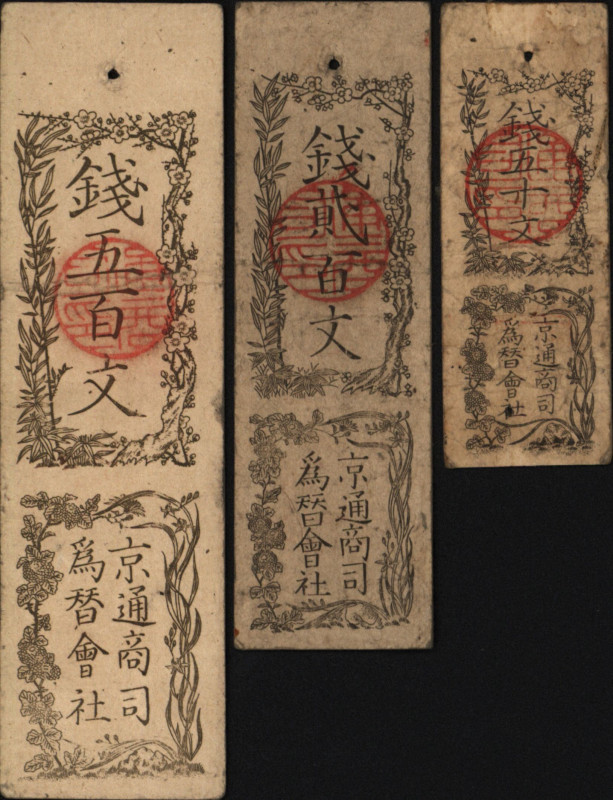 錢五百文
京通商司
爲替會社
錢貳百文
京通商司
爲替會社
錢五十文
京通商司
爲替會社